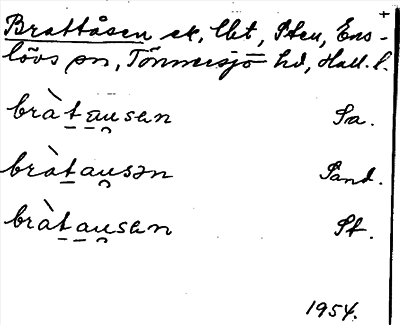 Brattåsen ek, lbt, Sten, Ens-
lövs sn, Tönnersjö hd, Hall. l.
bràtausen Sa.
bràtausən Sand.
bràtausen St.
1954.